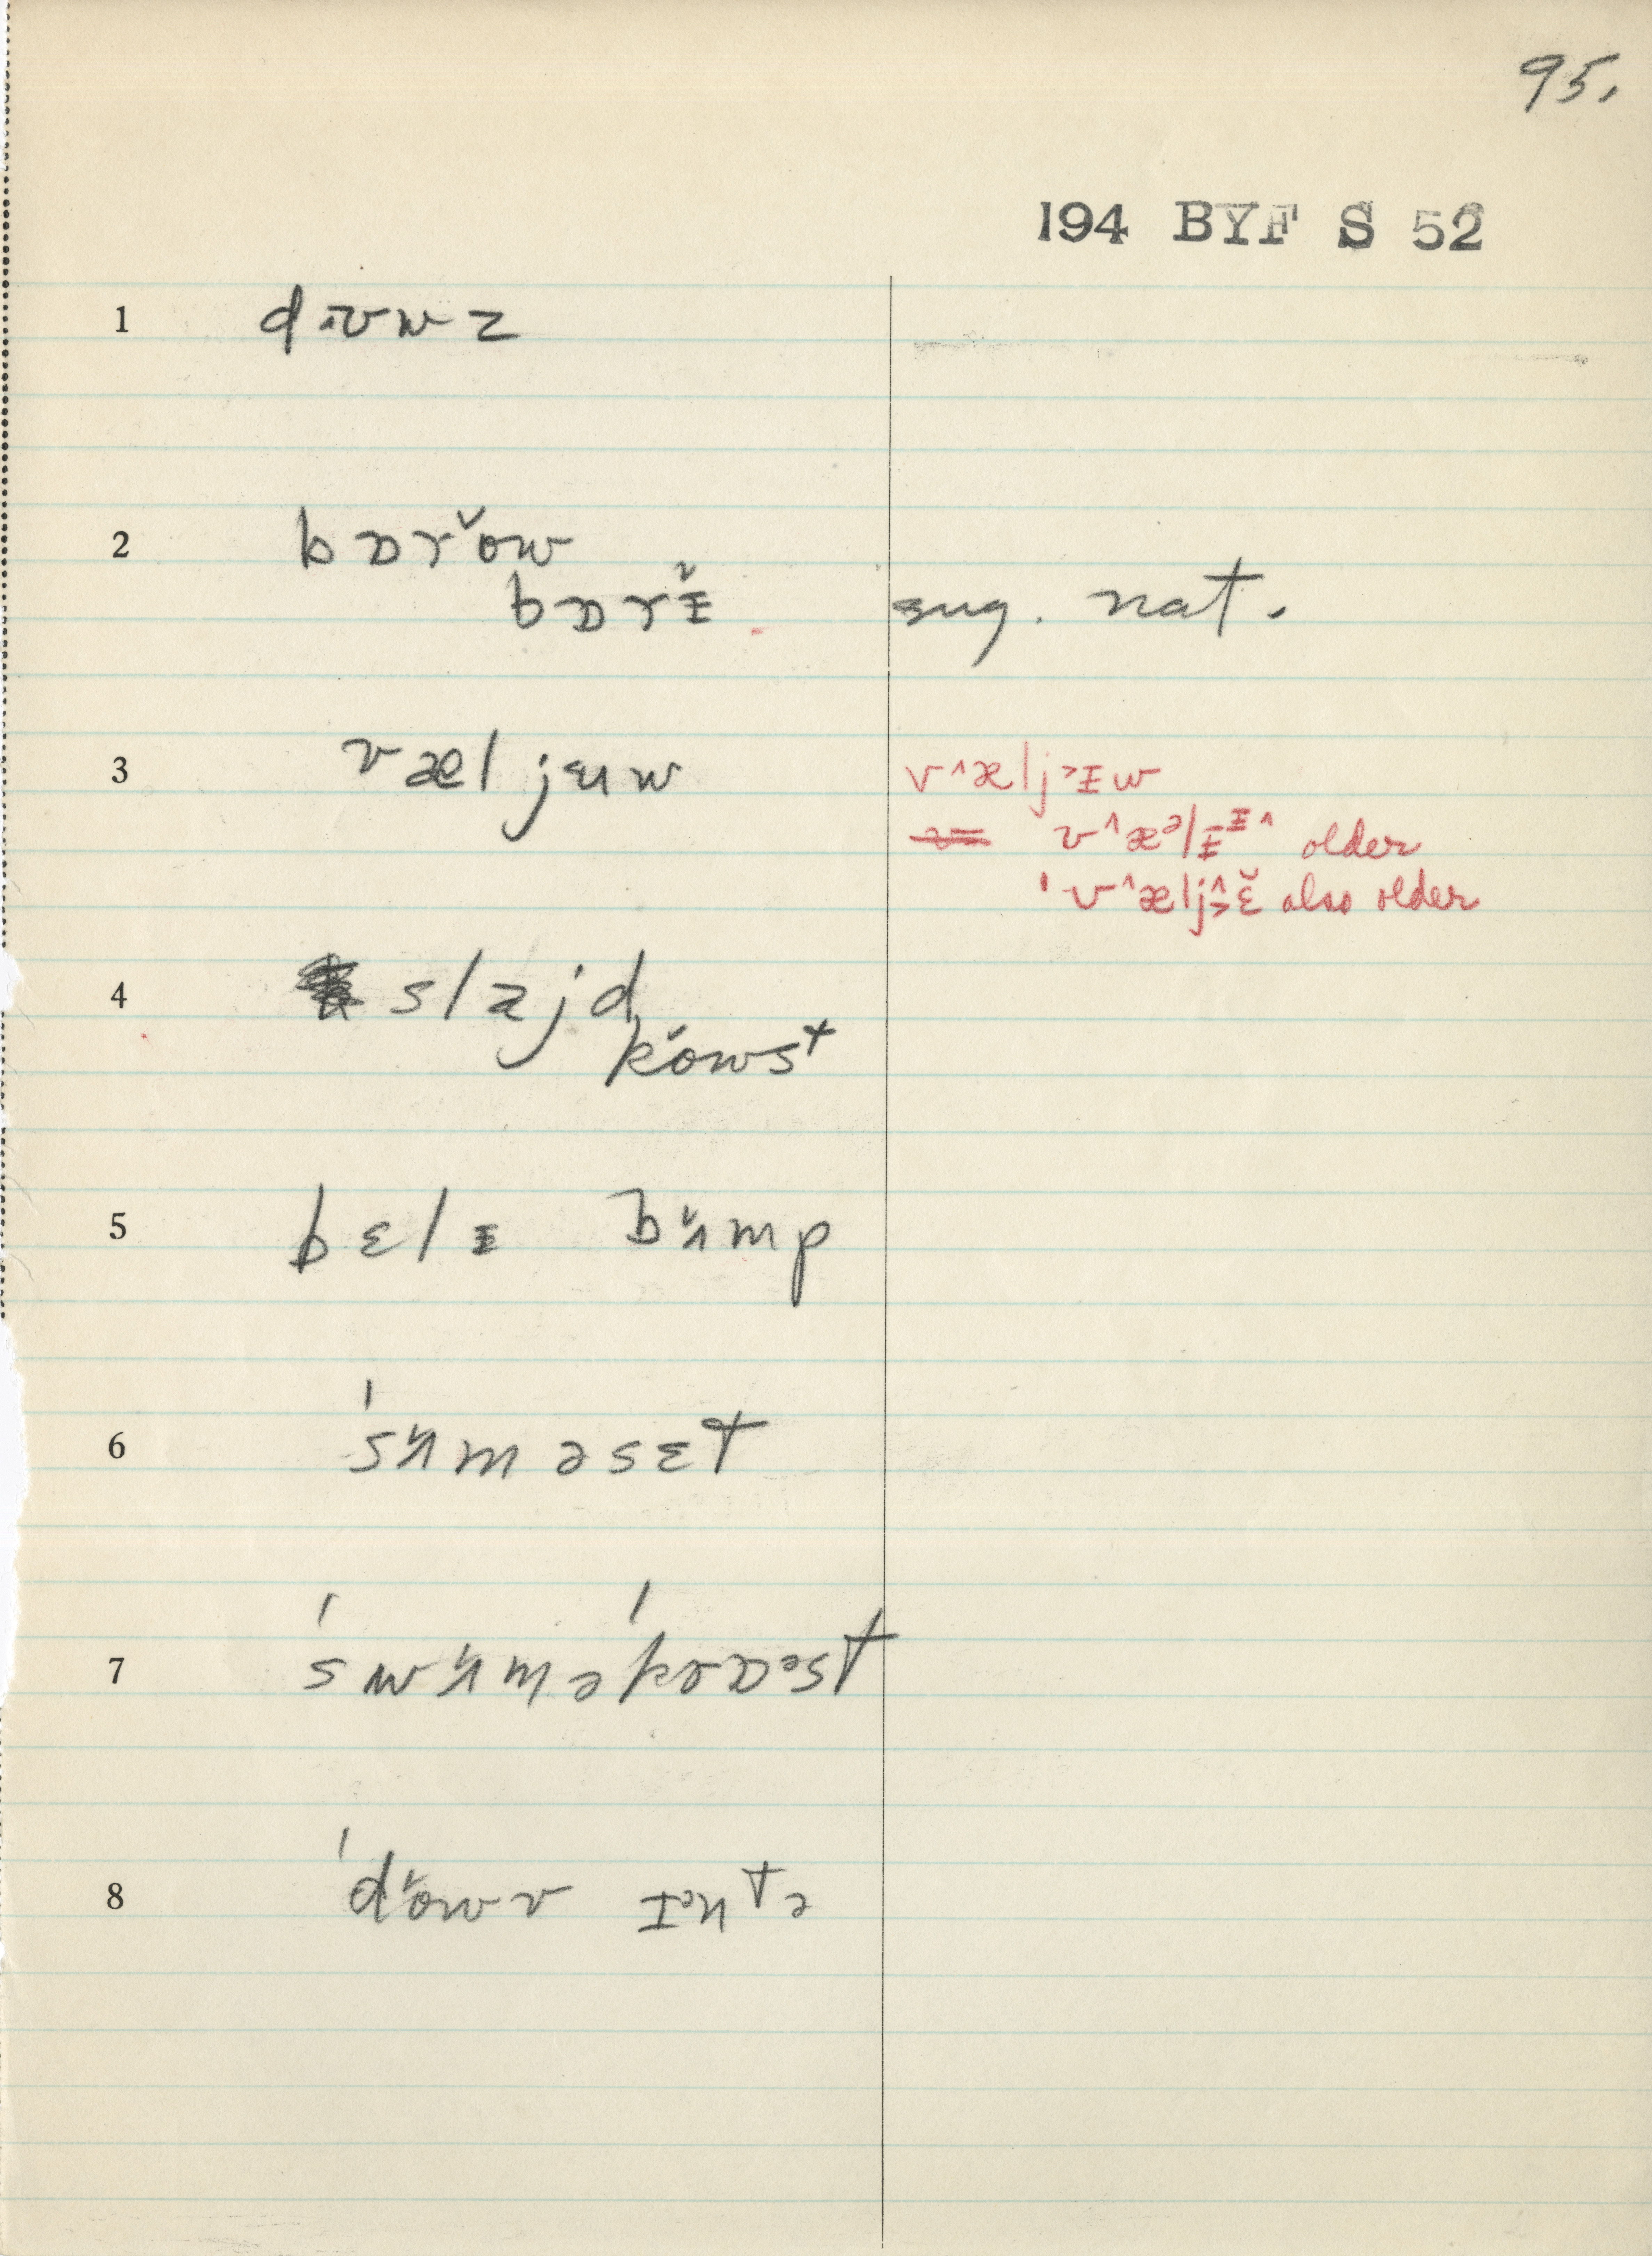 95.
194 BYF S 52
1 dɪvwz
2 bɒrŏw
bɒrᵻ̆ sug. nat.
3 væljʉw v^æljᵻw
v^æᵊlᵻᵻ^ older
'v^ælj^ɛ̆ also older
4 slajd
kŏwst
5 bɛlᵻ bʌ̆mp
6 'sʌ̆məsɛt
7 'swʌ̆mə'krɒᵊst
8 'dŏwv ɪᵊntə